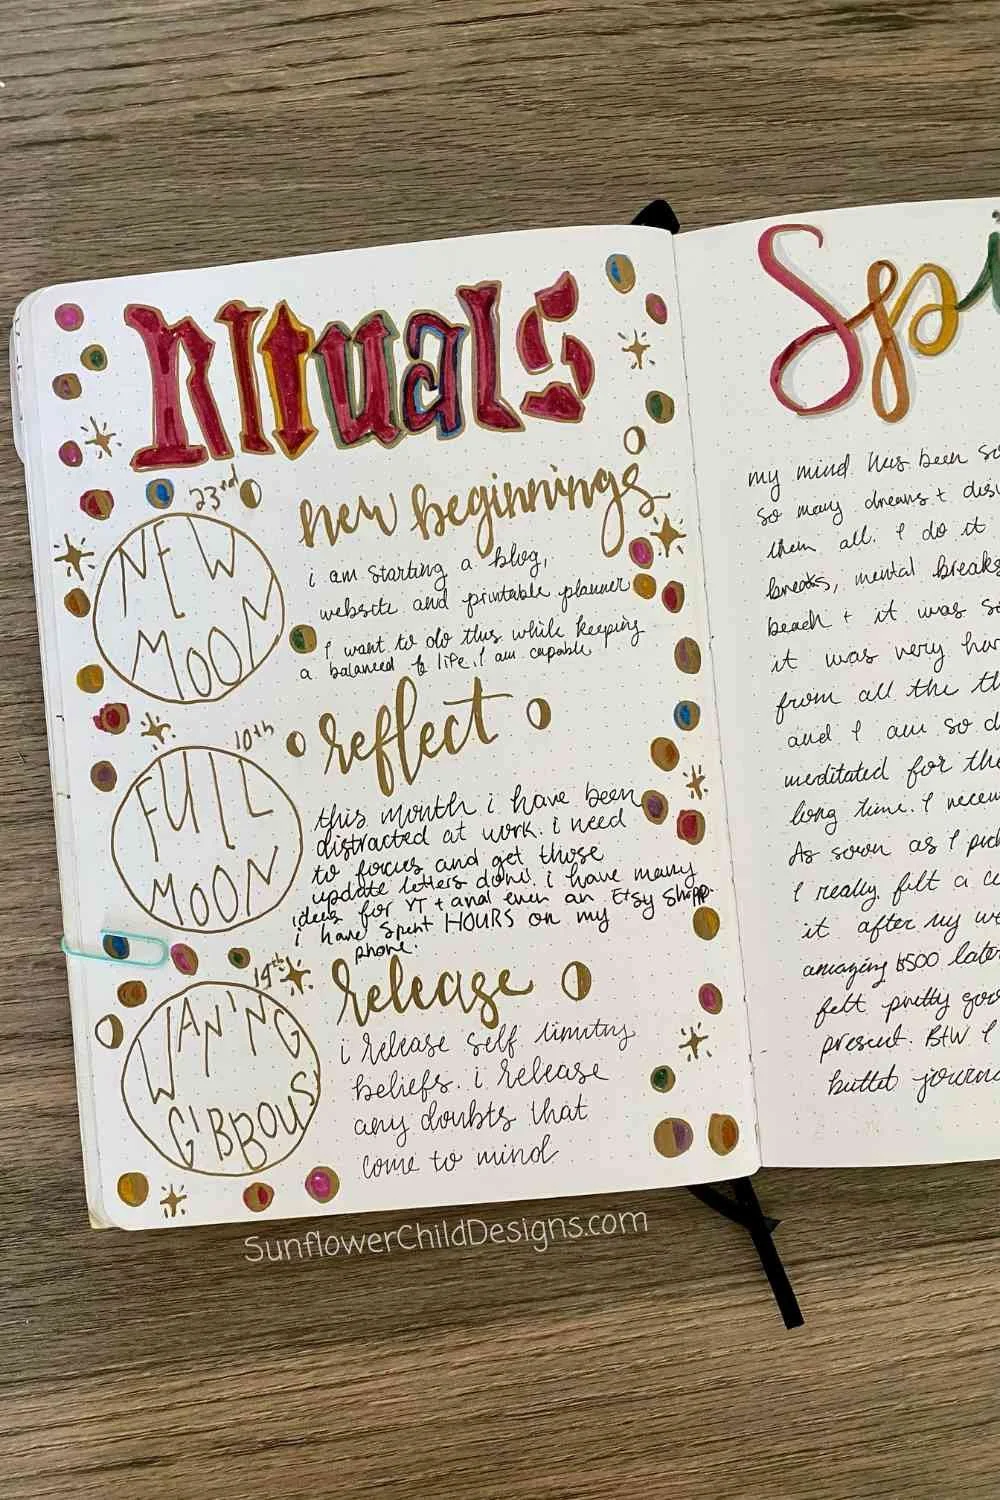 Rituals
23rd
NEW
MOON
new beginnings
i am starting a blog,
website and printable planner
i want to do this while keeping
a balanced life. I am capable
10th
FULL
MOON
reflect
this month i have been
distracted at work. i need
to focus and get those
update letters done. i have many
ideas for YT + and even an Etsy shop.
i have spent HOURS on my
phone.
19th
WANING
GIBBOUS
release
i release self limiting
beliefs. i release
any doubts that
come to mind
SunflowerChildDesigns.com
Spi
my mind has been so
so many dreams + desi
them all. I do it
breaks, mental breaks
beach + it was so
it was very har
from all the th
and I am so d
meditated for the
long time. I receiv
As soon as I pick
I really felt a ce
it. after my we
amazing $500 later
felt pretty good
present. BTW I
bullet journa